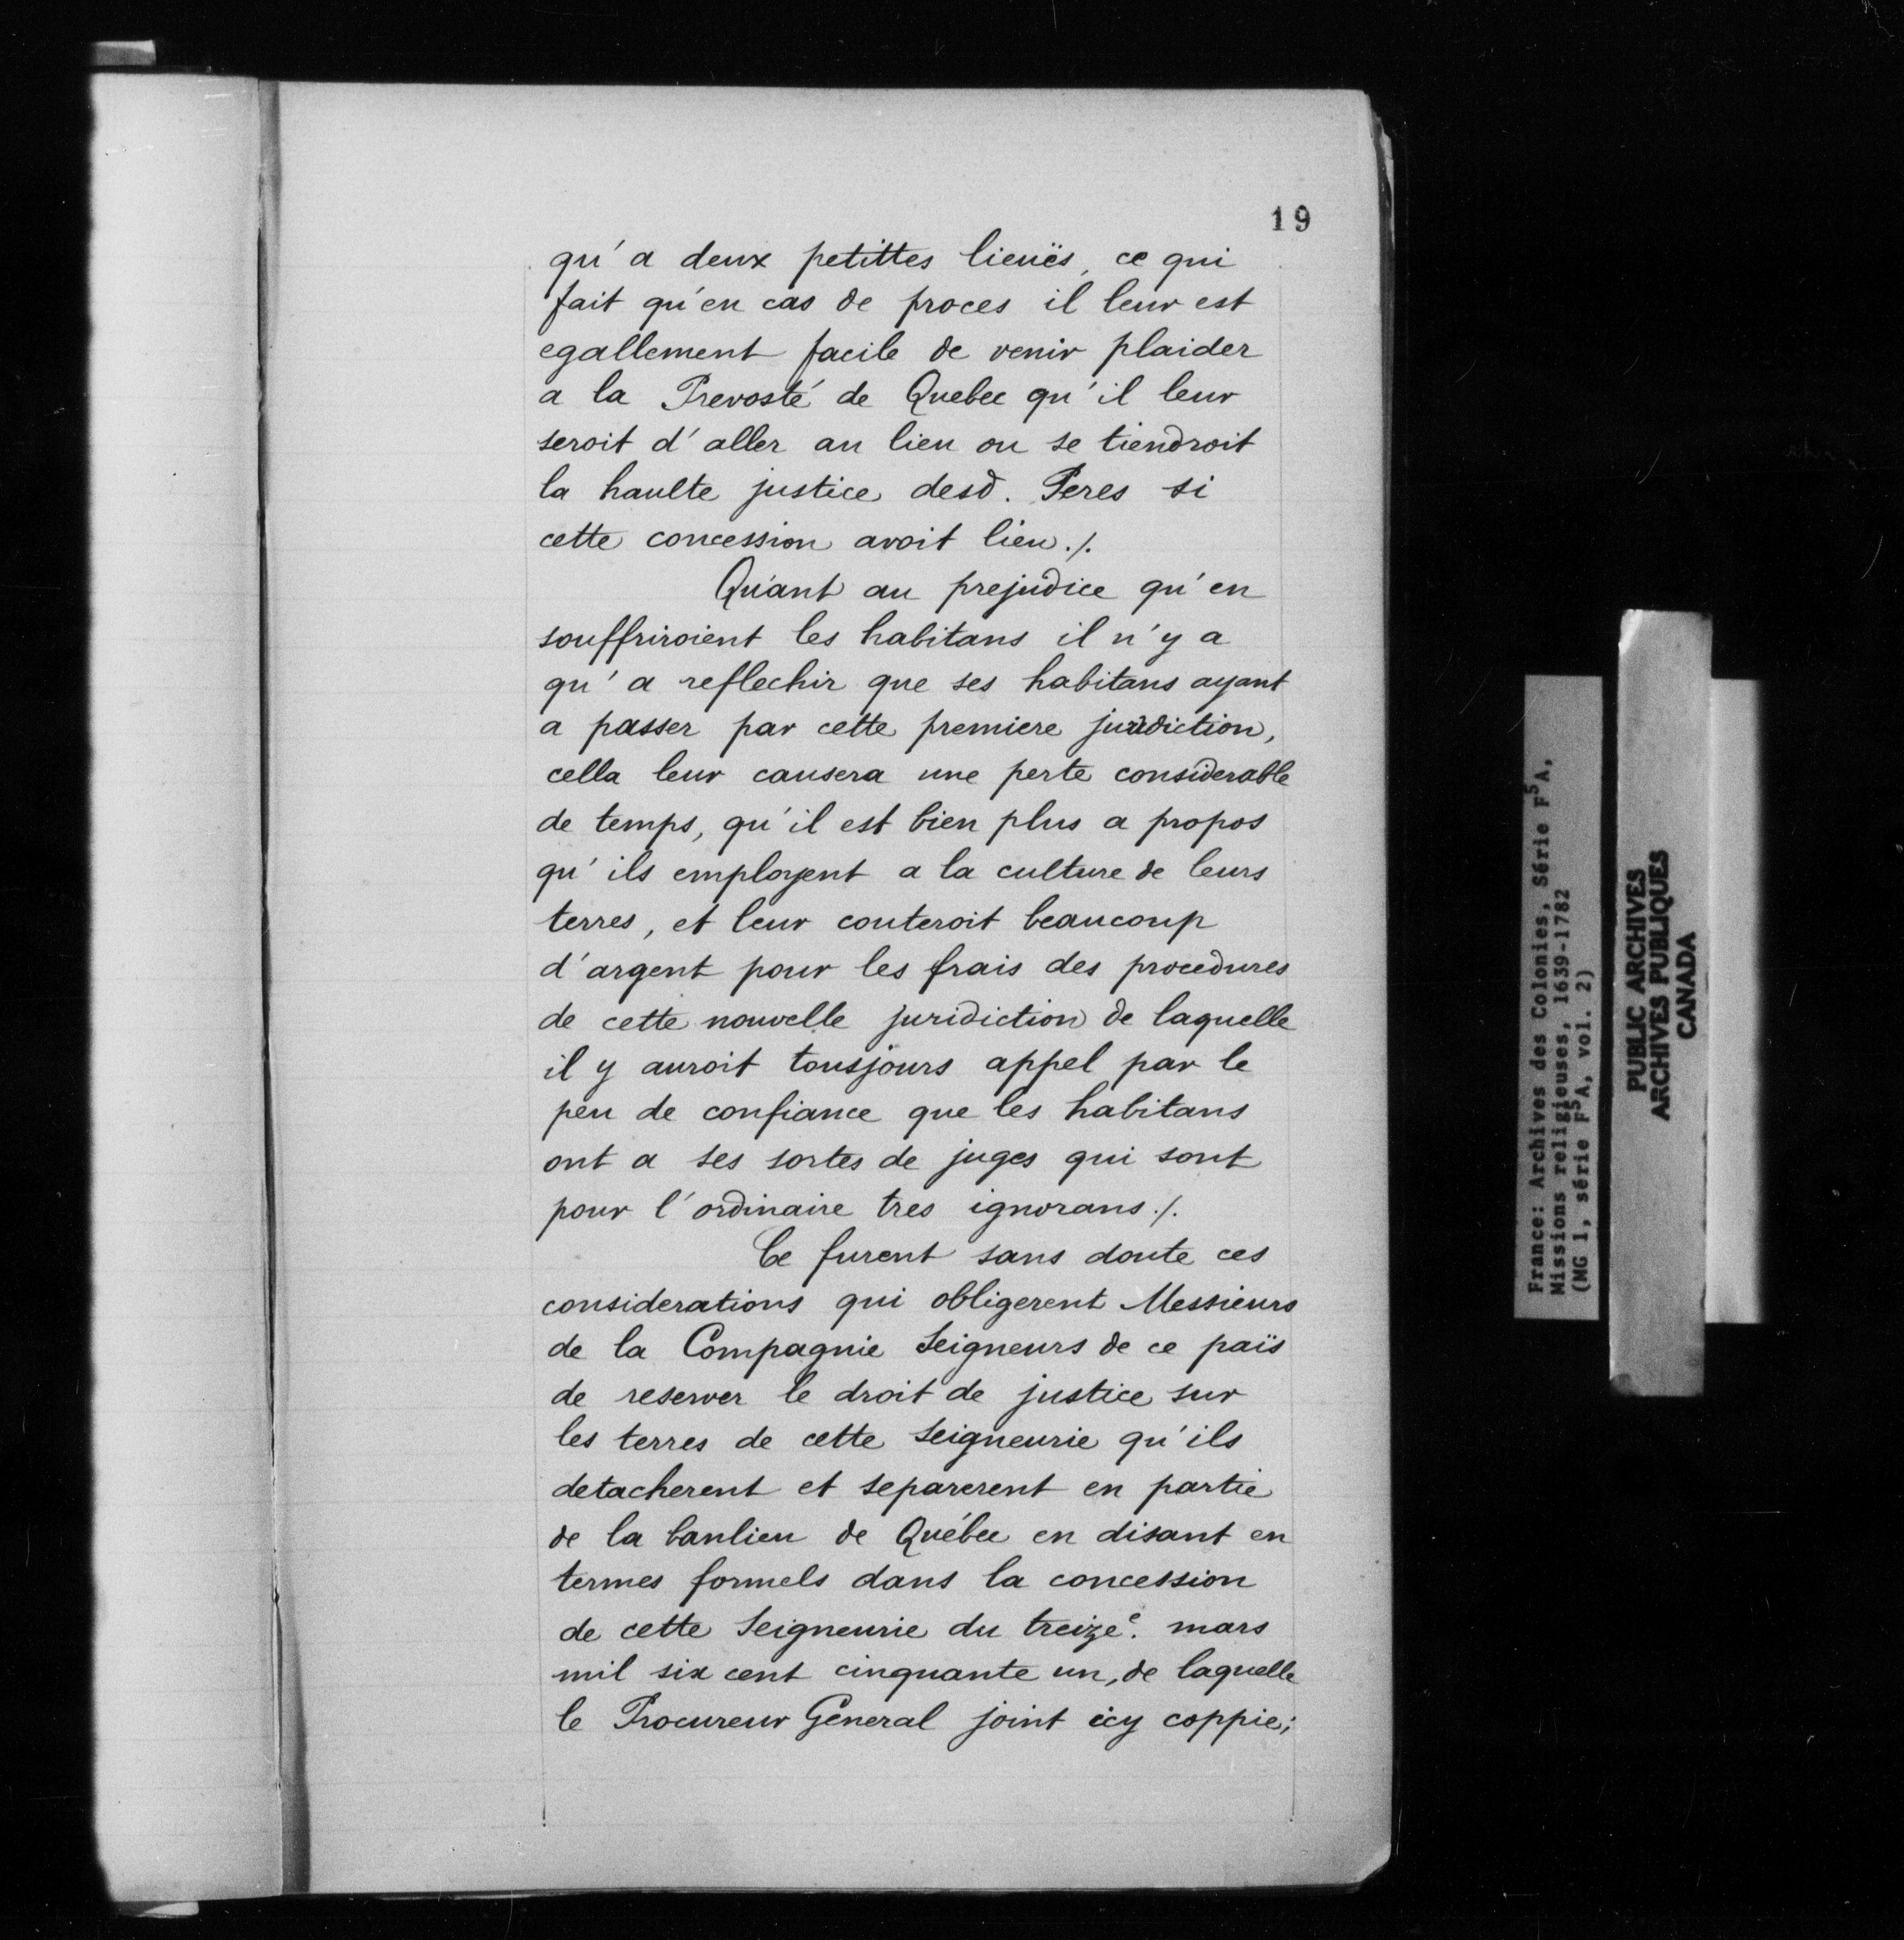 19
qu'a deux petittes lieuës, ce qui
fait qu'en cas de proces il leur est
egallement facile de venir plaider
a la Prevosté de Quebec qu'il leur
seroit d'aller au lieu ou se tiendroit
la haulte justice desd. Peres si
cette concession avoit lieu ./.
Quant au prejudice qu'en
souffriroient les habitans il n'y a
qu'a reflechir que ses habitans ayant
a passer par cette premiere juridiction,
cella leur causera une perte considerable
de temps, qu'il est bien plus a propos
qu'ils employent a la culture de leurs
terres, et leur couteroit beaucoup
d'argent pour les frais des procedures
de cette nouvelle juridiction de laquelle
il y auroit tousjours appel par le
peu de confiance que les habitans
ont a ses sortes de juges qui sont
pour l'ordinaire tres ignorans ./.
Ce furent sans doute ces
considerations qui obligerent Messieurs
de la Compagnie Seigneurs de ce païs
de reserver le droit de justice sur
les terres de cette Seigneurie qu'ils
detacherent et separerent en partie
de la banlieu de Québec en disant en
termes formels dans la concession
de cette Seigneurie du treize.e mars
mil six cent cinquante un, de laquelle
le Procureur General joint icy coppie;
France: Archives des Colonies, Série F5A,
Missions religieuses, 1639-1782
(MG 1, série F5A, vol. 2)
PUBLIC ARCHIVES
ARCHIVES PUBLIQUES
CANADA